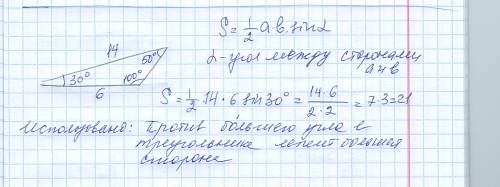 S = 1/2 a·b·sinα
14
50°
30°
100°
6
α-угол между сторонами
a и в
S = 1/2 · 14 · 6 sin 30° = 14·6 / 2·2 = 7·3 = 21
Использовано: Против бо́льшего угла в
треугольнике лежит большая
сторона